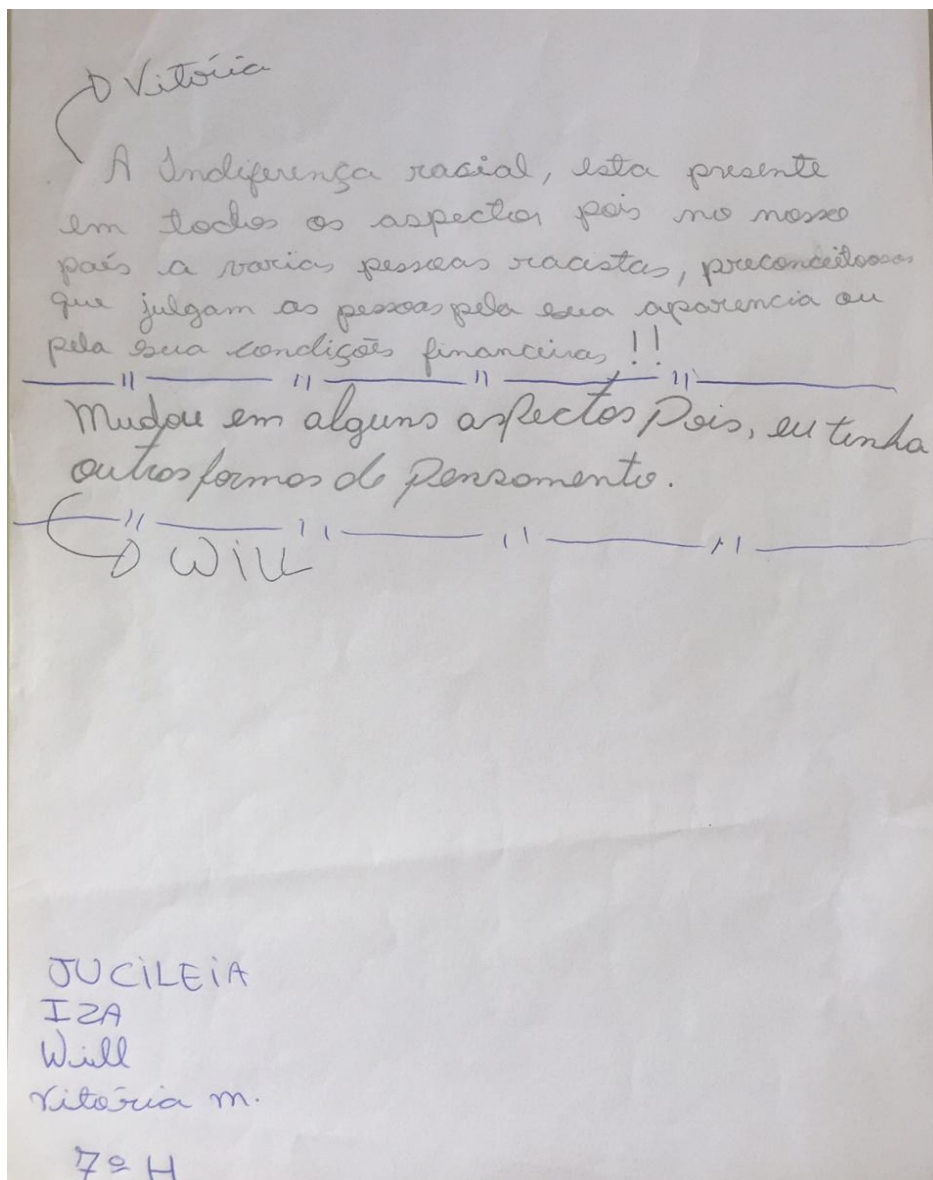 Vitória
A Indiferença racial, esta presente
em todos os aspectos pois no nosso
país a varias pessoas racistas, preconceitoosas
que julgam as pessoas pela sua aparencia ou
pela sua condições financeiras !!
Mudou em alguns aspectos Pois, eu tinha
outras formas de Pensamento.
Will
JUCILEIA
IZA
Will
Vitória m.
7º H